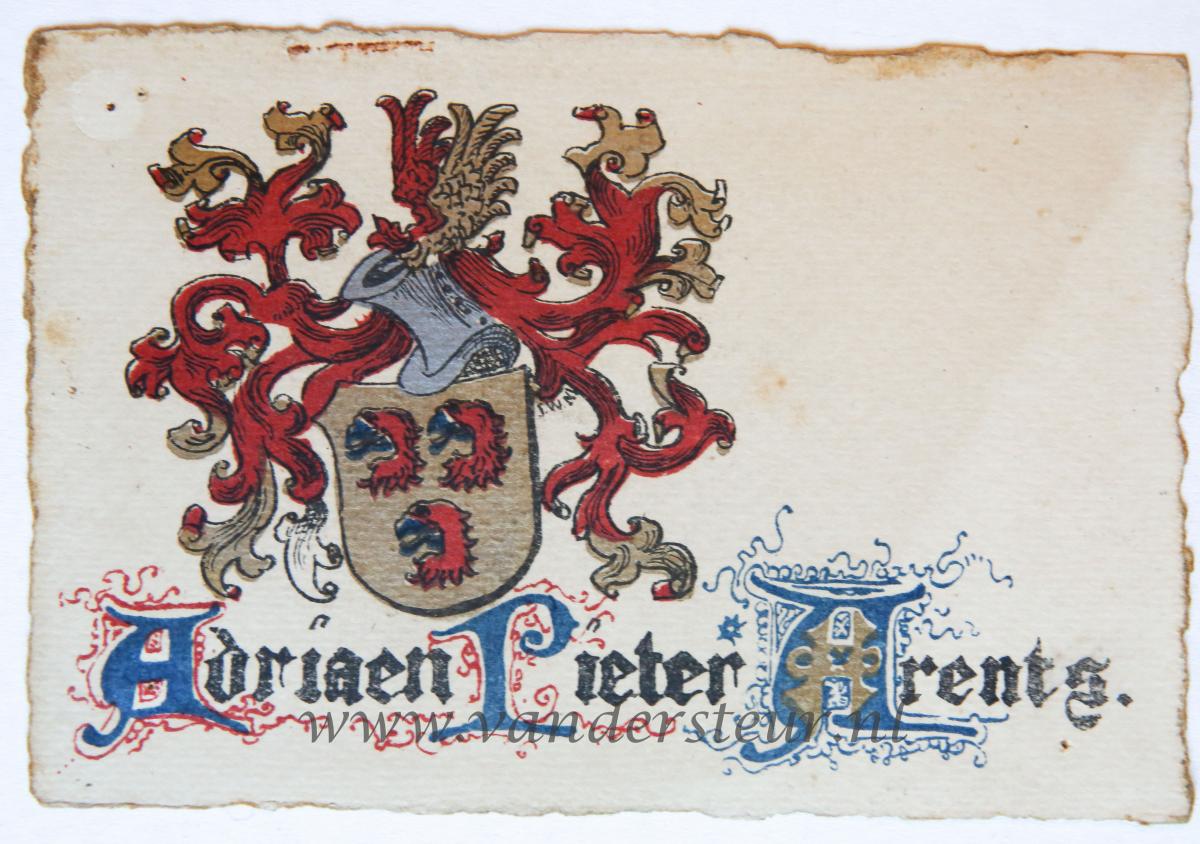 J.W.M
Adriaen Pieter Arents.
www.vandersteur.nl